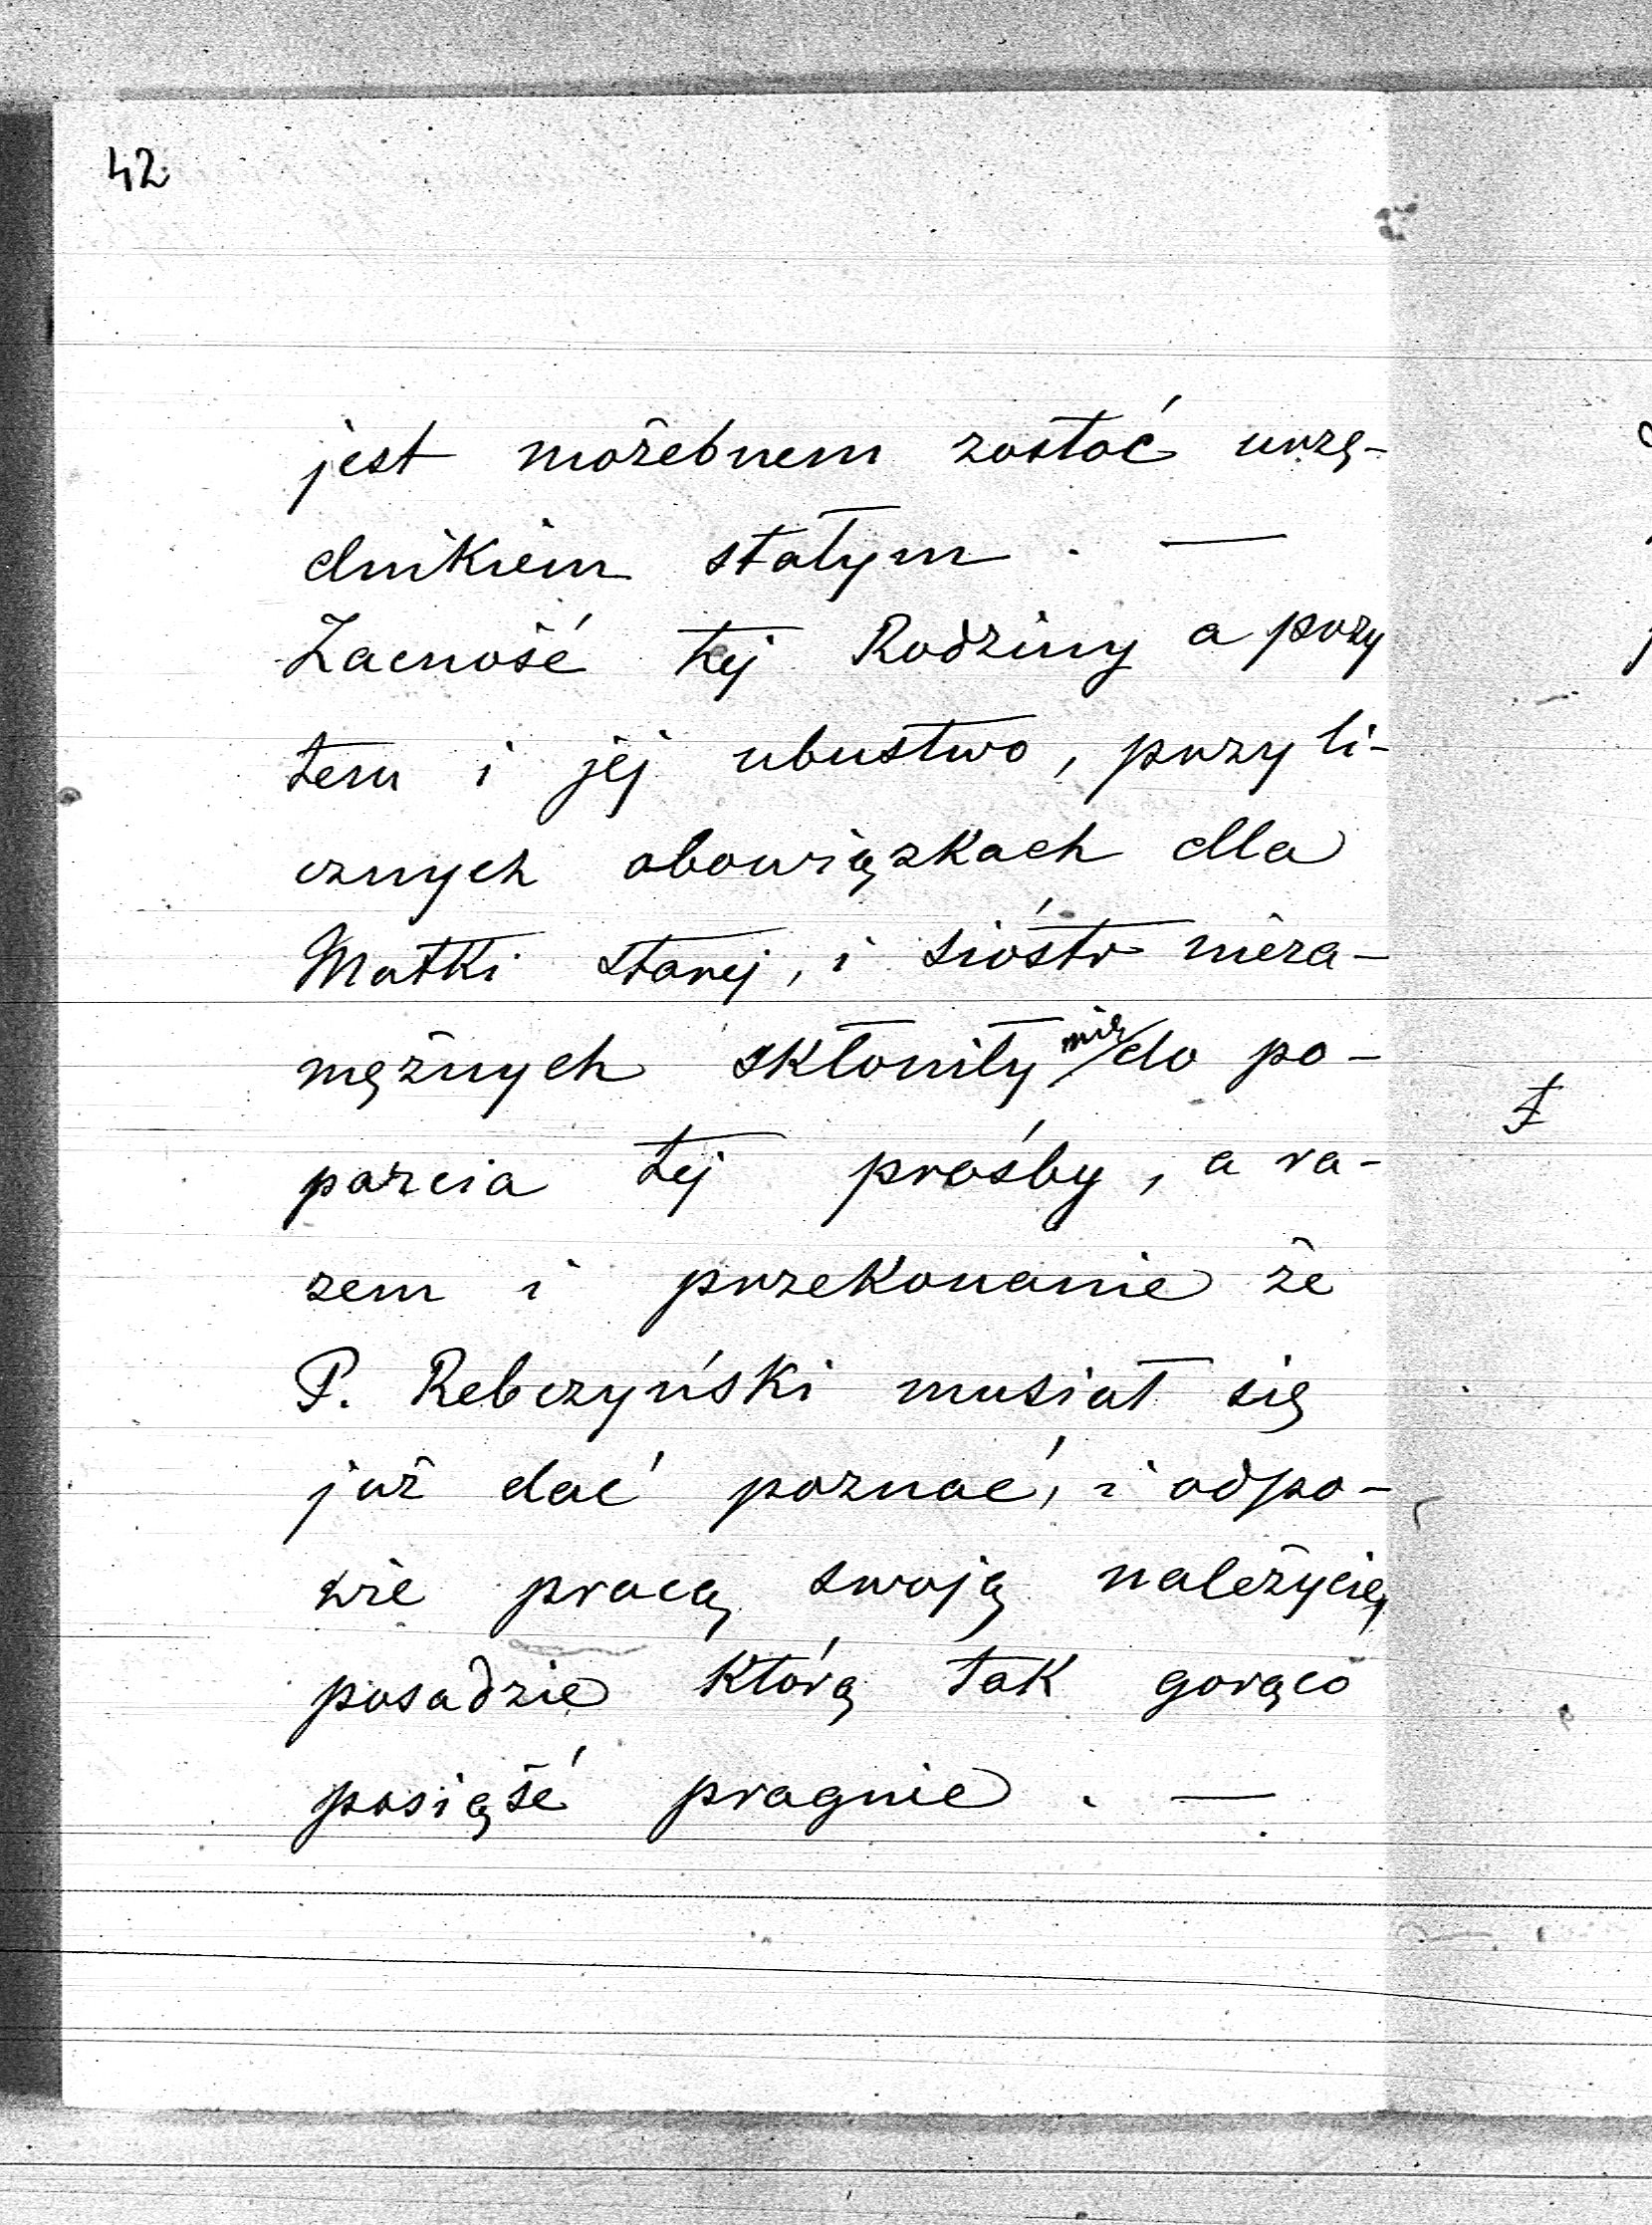 42
jest możebnem zostać urzę-
dnikiem stałym. —
Zacność tej Rodziny a przy
tem i jej ubustwo, przy li-
cznych obowiązkach dla
Matki starej, i sióstr nieza-
mężnych skłoniły mię do po-
parcia tej prośby, a ra-
zem i przekonanie że
P. Rebczyński musiał się
już dać poznać, i odpo-
wie pracą swoją należycie,
posadzie którą tak gorąco
posiąść pragnie. —